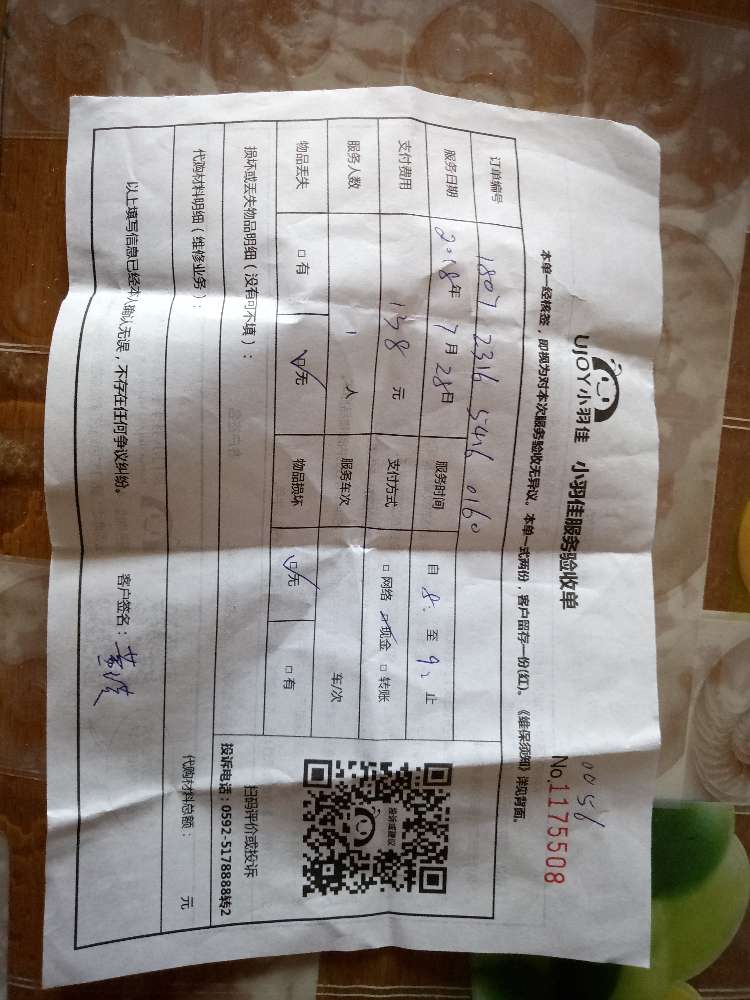 UJOY小羽佳 小羽佳服务验收单
0056
No.1175508
本单一经核签，即视为对本次服务验收无异议。本单一式两份，客户留存一份(红)。《维保须知》详见背面。
订单编号 1807 2316 5416 0160
服务日期 2018年7月28日 服务时间 自 8: 至 9: 止
支付费用 138 元 支付方式 □网络 ☑现金 □转账
服务人数 1 人 服务车次 车/次
物品丢失 □有 ☑无 物品损坏 ☑无 □有
损坏或丢失物品明细（没有可不填）：
投诉或建议
扫码评价或投诉
投诉电话：0592-5178888转2
代购材料明细（维修业务）： 代购材料总额： 元
以上填写信息已经本人确认无误，不存在任何争议纠纷。 客户签名：